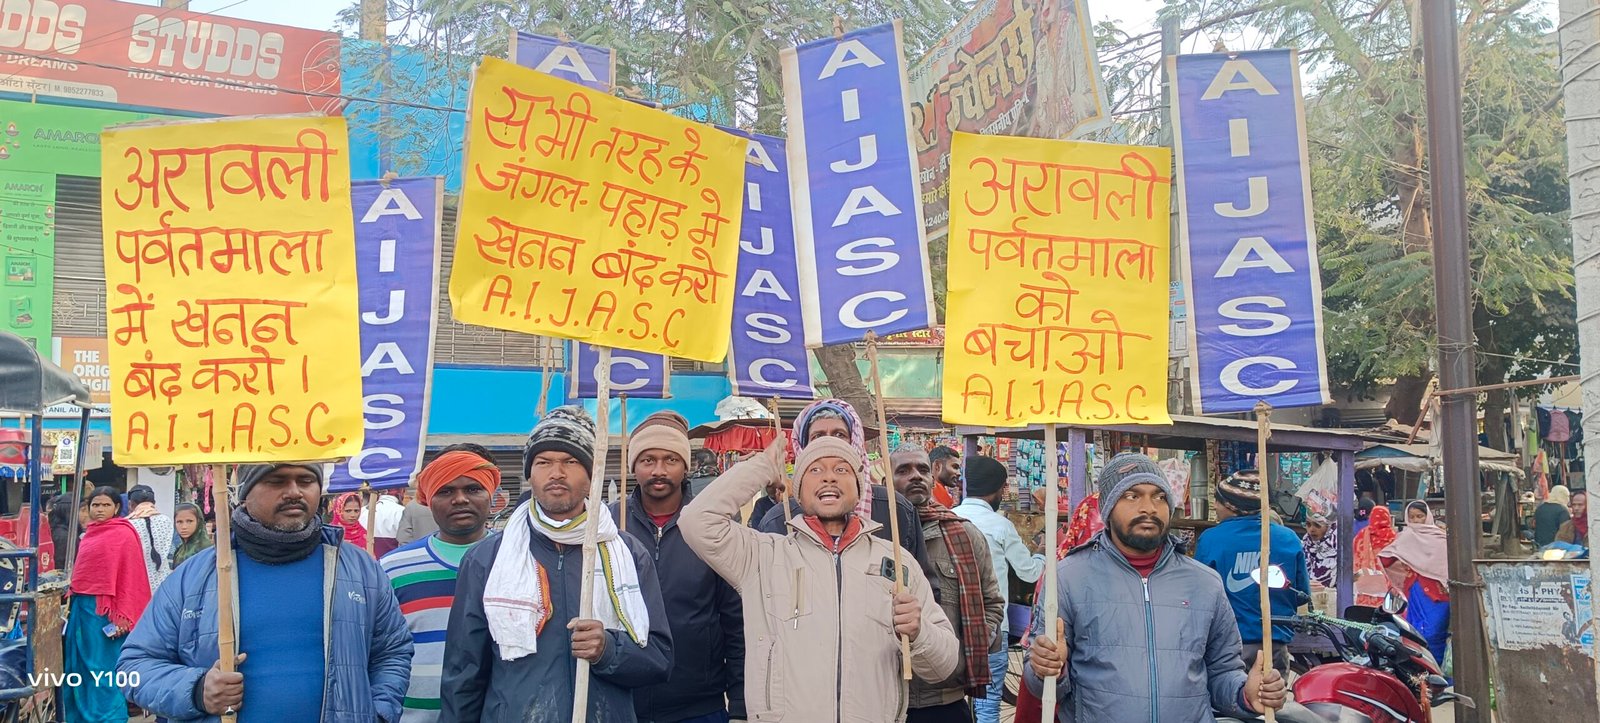 STUDDS
RIDE YOUR DREAMS
DDS
DREAMS
M. 9852277833
AMARON
AMARON
THE
ANIL AU
अरावली
पर्वतमाला
में खनन
बंद करो।
A.I.J.A.S.C.
AIJASC
सभी तरह के
जंगल-पहाड़ मे
खनन बंद करो
A.I.J.A.S.C
A
C
AIJASC
AIJASC
ज्वेलर्स
अरावली
पर्वतमाला
को
बचाओ
A.I.J.A.S.C
AIJASC
NIKE
vivo Y100